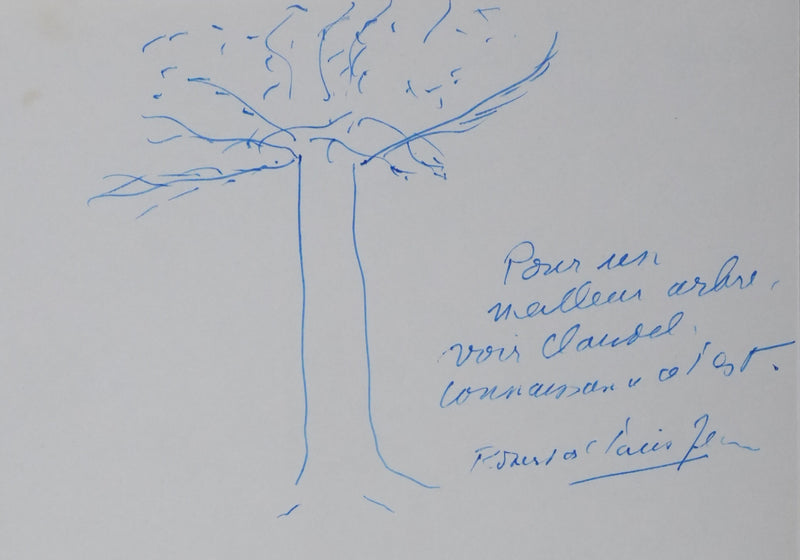 Pour un
meilleur arbre,
voir Claudel,
Connaissance de l'est.